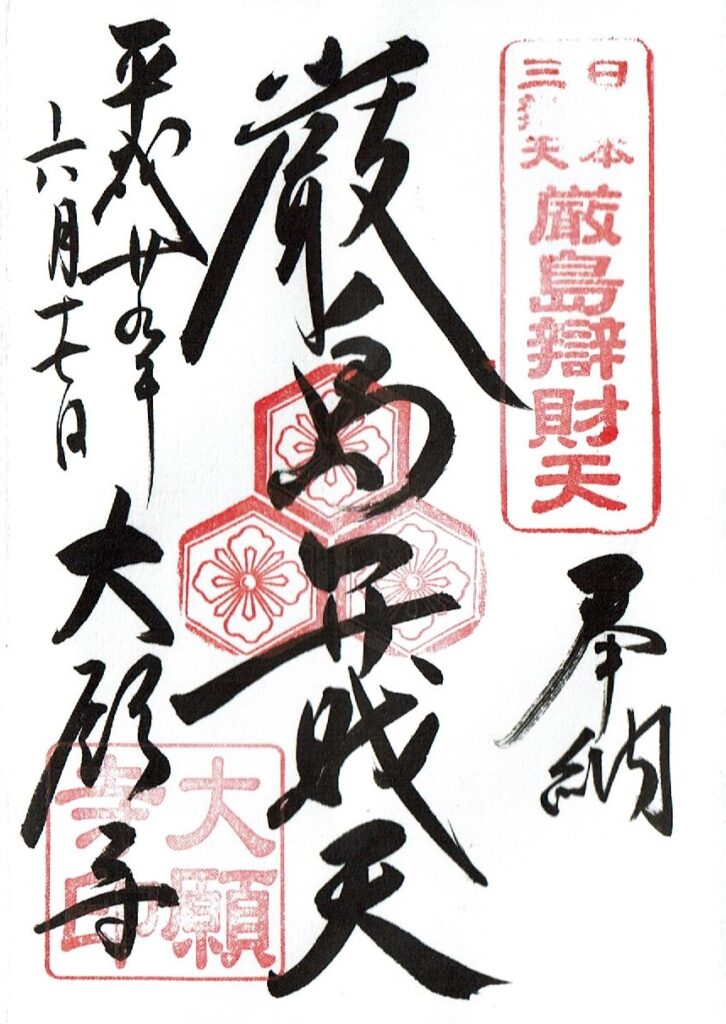 日本
三辨天
厳島辯財天
奉納
厳島弁財天
平成廿九年
六月十七日
大願寺
大願
寺印